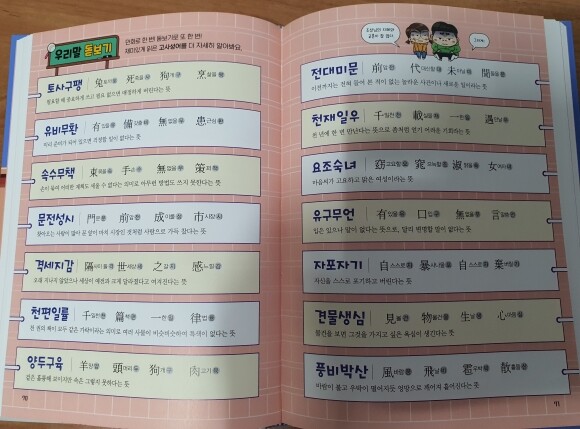 우리말 돋보기
만화로 한 번! 돋보기로 또 한 번!
재미있게 읽은 고사성어를 더 자세히 알아봐요.
토사구팽 兔 토끼 토 死 죽을 사 狗 개 구 烹 삶을 팽
필요할 때 요긴하게 쓰고 필요 없으면 야박하게 버린다는 뜻
유비무환 有 있을 유 備 갖출 비 無 없을 무 患 근심 환
미리 준비가 되어 있으면 걱정할 일이 없다는 뜻
속수무책 束 묶을 속 手 손 수 無 없을 무 策 꾀 책
손이 묶여 어떠한 계책도 세울 수 없다는 의미로 아무런 방법도 쓰지 못한다는 뜻
문전성시 門 문 문 前 앞 전 成 이룰 성 市 시장 시
찾아오는 사람이 많아 문 앞이 마치 시장인 것처럼 사람으로 가득 찼다는 뜻
격세지감 隔 사이 뜰 격 世 세상 세 之 갈 지 感 느낄 감
오래 지나지 않았으나 세상이 예전과 크게 달라졌다고 여겨진다는 뜻
천편일률 千 일천 천 篇 책 편 一 한 일 律 법 률
천 권의 책이 모두 같은 가락이라는 의미로 여러 사물이 비슷비슷하여 특색이 없다는 뜻
양두구육 羊 양 양 頭 머리 두 狗 개 구 肉 고기 육
겉은 훌륭해 보이지만 속은 그렇지 못하다는 뜻
70
전대미문 前 앞 전 代 대신할 대 未 아닐 미 聞 들을 문
이전까지는 전혀 들어 본 적이 없는 놀라운 사건이나 새로운 일이라는 뜻
천재일우 千 일천 천 載 실을 재 一 한 일 遇 만날 우
천 년에 한 번 만난다는 뜻으로 좀처럼 얻기 어려운 기회라는 뜻
요조숙녀 窈 고요할 요 窕 으늑할 조 淑 맑을 숙 女 여자 녀
마음씨가 고요하고 맑은 여성이라는 뜻
유구무언 有 있을 유 口 입 구 無 없을 무 言 말씀 언
입은 있으나 말이 없다는 뜻으로, 달리 변명할 말이 없다는 뜻
자포자기 自 스스로 자 暴 사나울 포 自 스스로 자 棄 버릴 기
자신을 스스로 포기하고 버린다는 뜻
견물생심 見 볼 견 物 물건 물 生 날 생 心 마음 심
물건을 보면 그것을 가지고 싶은 욕심이 생긴다는 뜻
풍비박산 風 바람 풍 飛 날 비 雹 우박 박 散 흩을 산
바람이 불고 우박이 떨어지듯 엉망으로 깨어져 흩어진다는 뜻
71